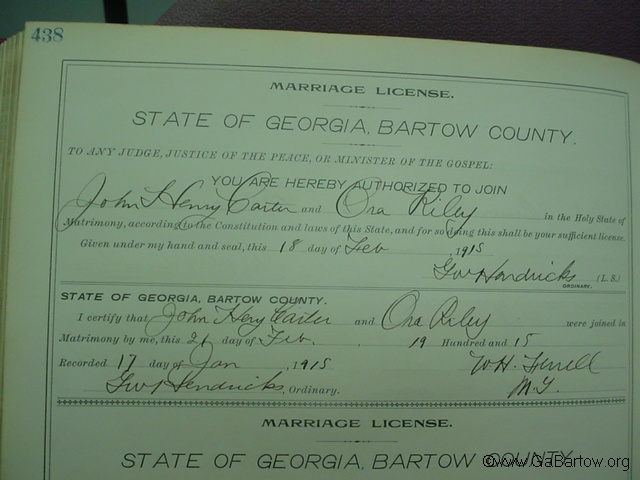 438
MARRIAGE LICENSE.
STATE OF GEORGIA, BARTOW COUNTY.
TO ANY JUDGE, JUSTICE OF THE PEACE, OR MINISTER OF THE GOSPEL:
YOU ARE HEREBY AUTHORIZED TO JOIN
John Henry Carter and Ora Riley in the Holy State of
Matrimony, according to the Constitution and laws of this State, and for so doing this shall be your sufficient license.
Given under my hand and seal, this 18 day of Feb , 1915
GW Hendricks (L. S.)
ORDINARY.
STATE OF GEORGIA, BARTOW COUNTY.
I certify that John Henry Carter and Ora Riley were joined in
Matrimony by me, this 21 day of Feb. 19 Hundred and 15
Recorded 17 day of Jan , 1915 W.H.
GW Hendricks, Ordinary. M.G.
MARRIAGE LICENSE.
STATE OF GEORGIA, BARTOW COUNTY
©www.GaBartow.org